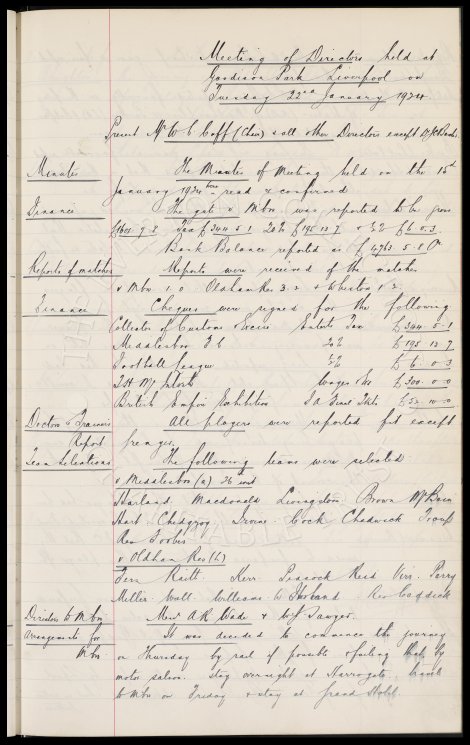 Meeting of Directors held at
Goodison Park Liverpool on
Tuesday 22nd January 1924.
Present Mr W. C. Cuff (Chair) & all other Directors except
Minutes
The Minutes of Meeting held on the 15th
January 1924 were read & confirmed
Finance
The gate v Mbro was reported to be gross
£1601. 9. 8 Tax £344. 5. 1 20% £195. 13. 7 & ½% £6. 0. 3.
Bank Balance reported as £4763. 5. 8
Reports of matches
Reports were received of the matches
v Mbro 1. 0 Oldham Res 3. 2 & Wheeton
Finance
Cheques were signed for the following
Collector of Customs & Excise Entert. Tax £344. 5. 1
Middlesbro F C 20% £195 13 7
Football League ½% £6. 0. 3
T H McIntosh Wages £300. 0. 0
British Empire Exhibition £52 10 0
Doctors & Trainers
Report
All players were reported fit except
Grenyer.
Team Selections
The following teams were selected
v Middlesbro (a) 26 inst
Harland. Macdonald Livingston Brown McBain
Hart Chedgzoy Irvine Cock Chadwick Troup
Res Forbes
v Oldham Res (h)
Fern Raitt. Kerr. Peacock Reid Virr. Parry
Miller Wall Williams Res Caddick
Directors to Mbro
Messrs A R Wade & W J Sawyer.
Arrangements for
Mbro
It was decided to commence the journey
on Thursday by rail if possible & failing that by
motor saloon. stay overnight at Harrogate, travel
to Mbro on Friday & stay at Grand Hotel